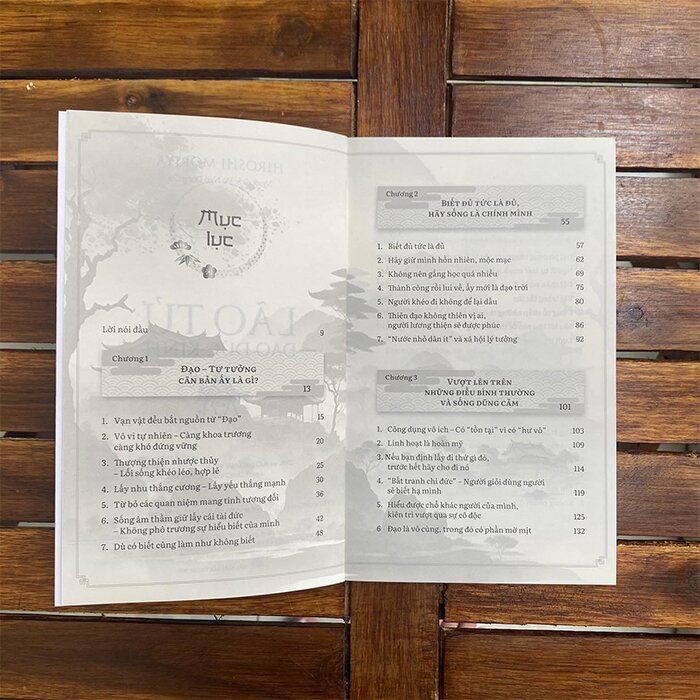 HIROSHI MORIYA
Mục
lục
LÃO TỬ
Lời nói đầu 9
Chương 1
ĐẠO – TƯ TƯỞNG
CĂN BẢN ẤY LÀ GÌ?
13
1. Vạn vật đều bắt nguồn từ “Đạo” 15
2. Vô vi tự nhiên – Càng khoa trương
càng khó đứng vững 20
3. Thượng thiện nhược thủy
– Lối sống khéo léo, hợp lẽ 25
4. Lấy nhu thắng cương – Lấy yếu thắng mạnh 30
5. Từ bỏ các quan niệm mang tính tương đối 36
6. Sống âm thầm giữ lấy cái tài đức 42
– Không phô trương sự hiểu biết của mình
7. Dù có biết cũng làm như không biết 48
Chương 2
BIẾT ĐỦ TỨC LÀ ĐỦ,
HÃY SỐNG LÀ CHÍNH MÌNH
55
1. Biết đủ tức là đủ 57
2. Hãy giữ mình hồn nhiên, mộc mạc 62
3. Không nên gắng học quá nhiều 69
4. Thành công rồi lui về, ấy mới là đạo trời 75
5. Người khéo đi không để lại dấu 80
6. Thiên đạo không thiên vị ai,
người lương thiện sẽ được phúc 86
7. “Nước nhỏ dân ít” và xã hội lý tưởng 92
Chương 3
VƯỢT LÊN TRÊN
NHỮNG ĐIỀU BÌNH THƯỜNG
VÀ SỐNG DŨNG CẢM
101
1. Công dụng vô ích – Có “tồn tại” vì có “hư vô” 103
2. Linh hoạt là hoàn mỹ 109
3. Nếu bạn định lấy đi thứ gì đó,
trước hết hãy cho đi nó 114
4. “Bất tranh chi đức” – Người giỏi dùng người
sẽ biết hạ mình 119
5. Hiểu được chỗ khác người của mình,
kiên trì vượt qua sự cô độc 125
6 Đạo là vô cùng, trong đó có phần mờ mịt 132